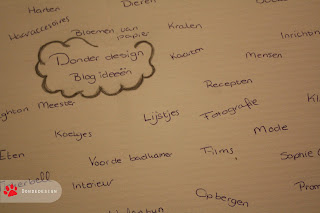 Harten
Dieren
Haaraccessoires
Bloemen van
papier
Kralen
Donder design
Blog ideeën
Kaarten
Mensen
Recepten
Meester
Lijstjes
Fotografie
Koetjes
Mode
Eten
Voor de badkamer
Films
Sophie
Interieur
Opbergen
DonderDesign